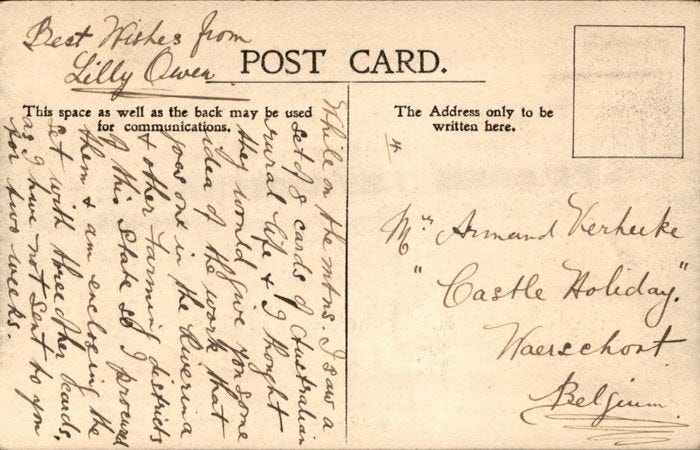 Best Wishes from
Lilly Owen
POST CARD.
This space as well as the back may be used
for communications.
The Address only to be
written here.
4
While on the mtns. I saw a
set of 8 cards of Australian
rural life & I thought
they would give you some
idea of the work that
goes one in the Riverina
& other farming districts
of this State so I procured
them & am enclosing the
set with three other cards,
as I have not sent to you
for two weeks.
Mr Armand Verhecke
"Castle Holiday."
Waerschoot
Belgium